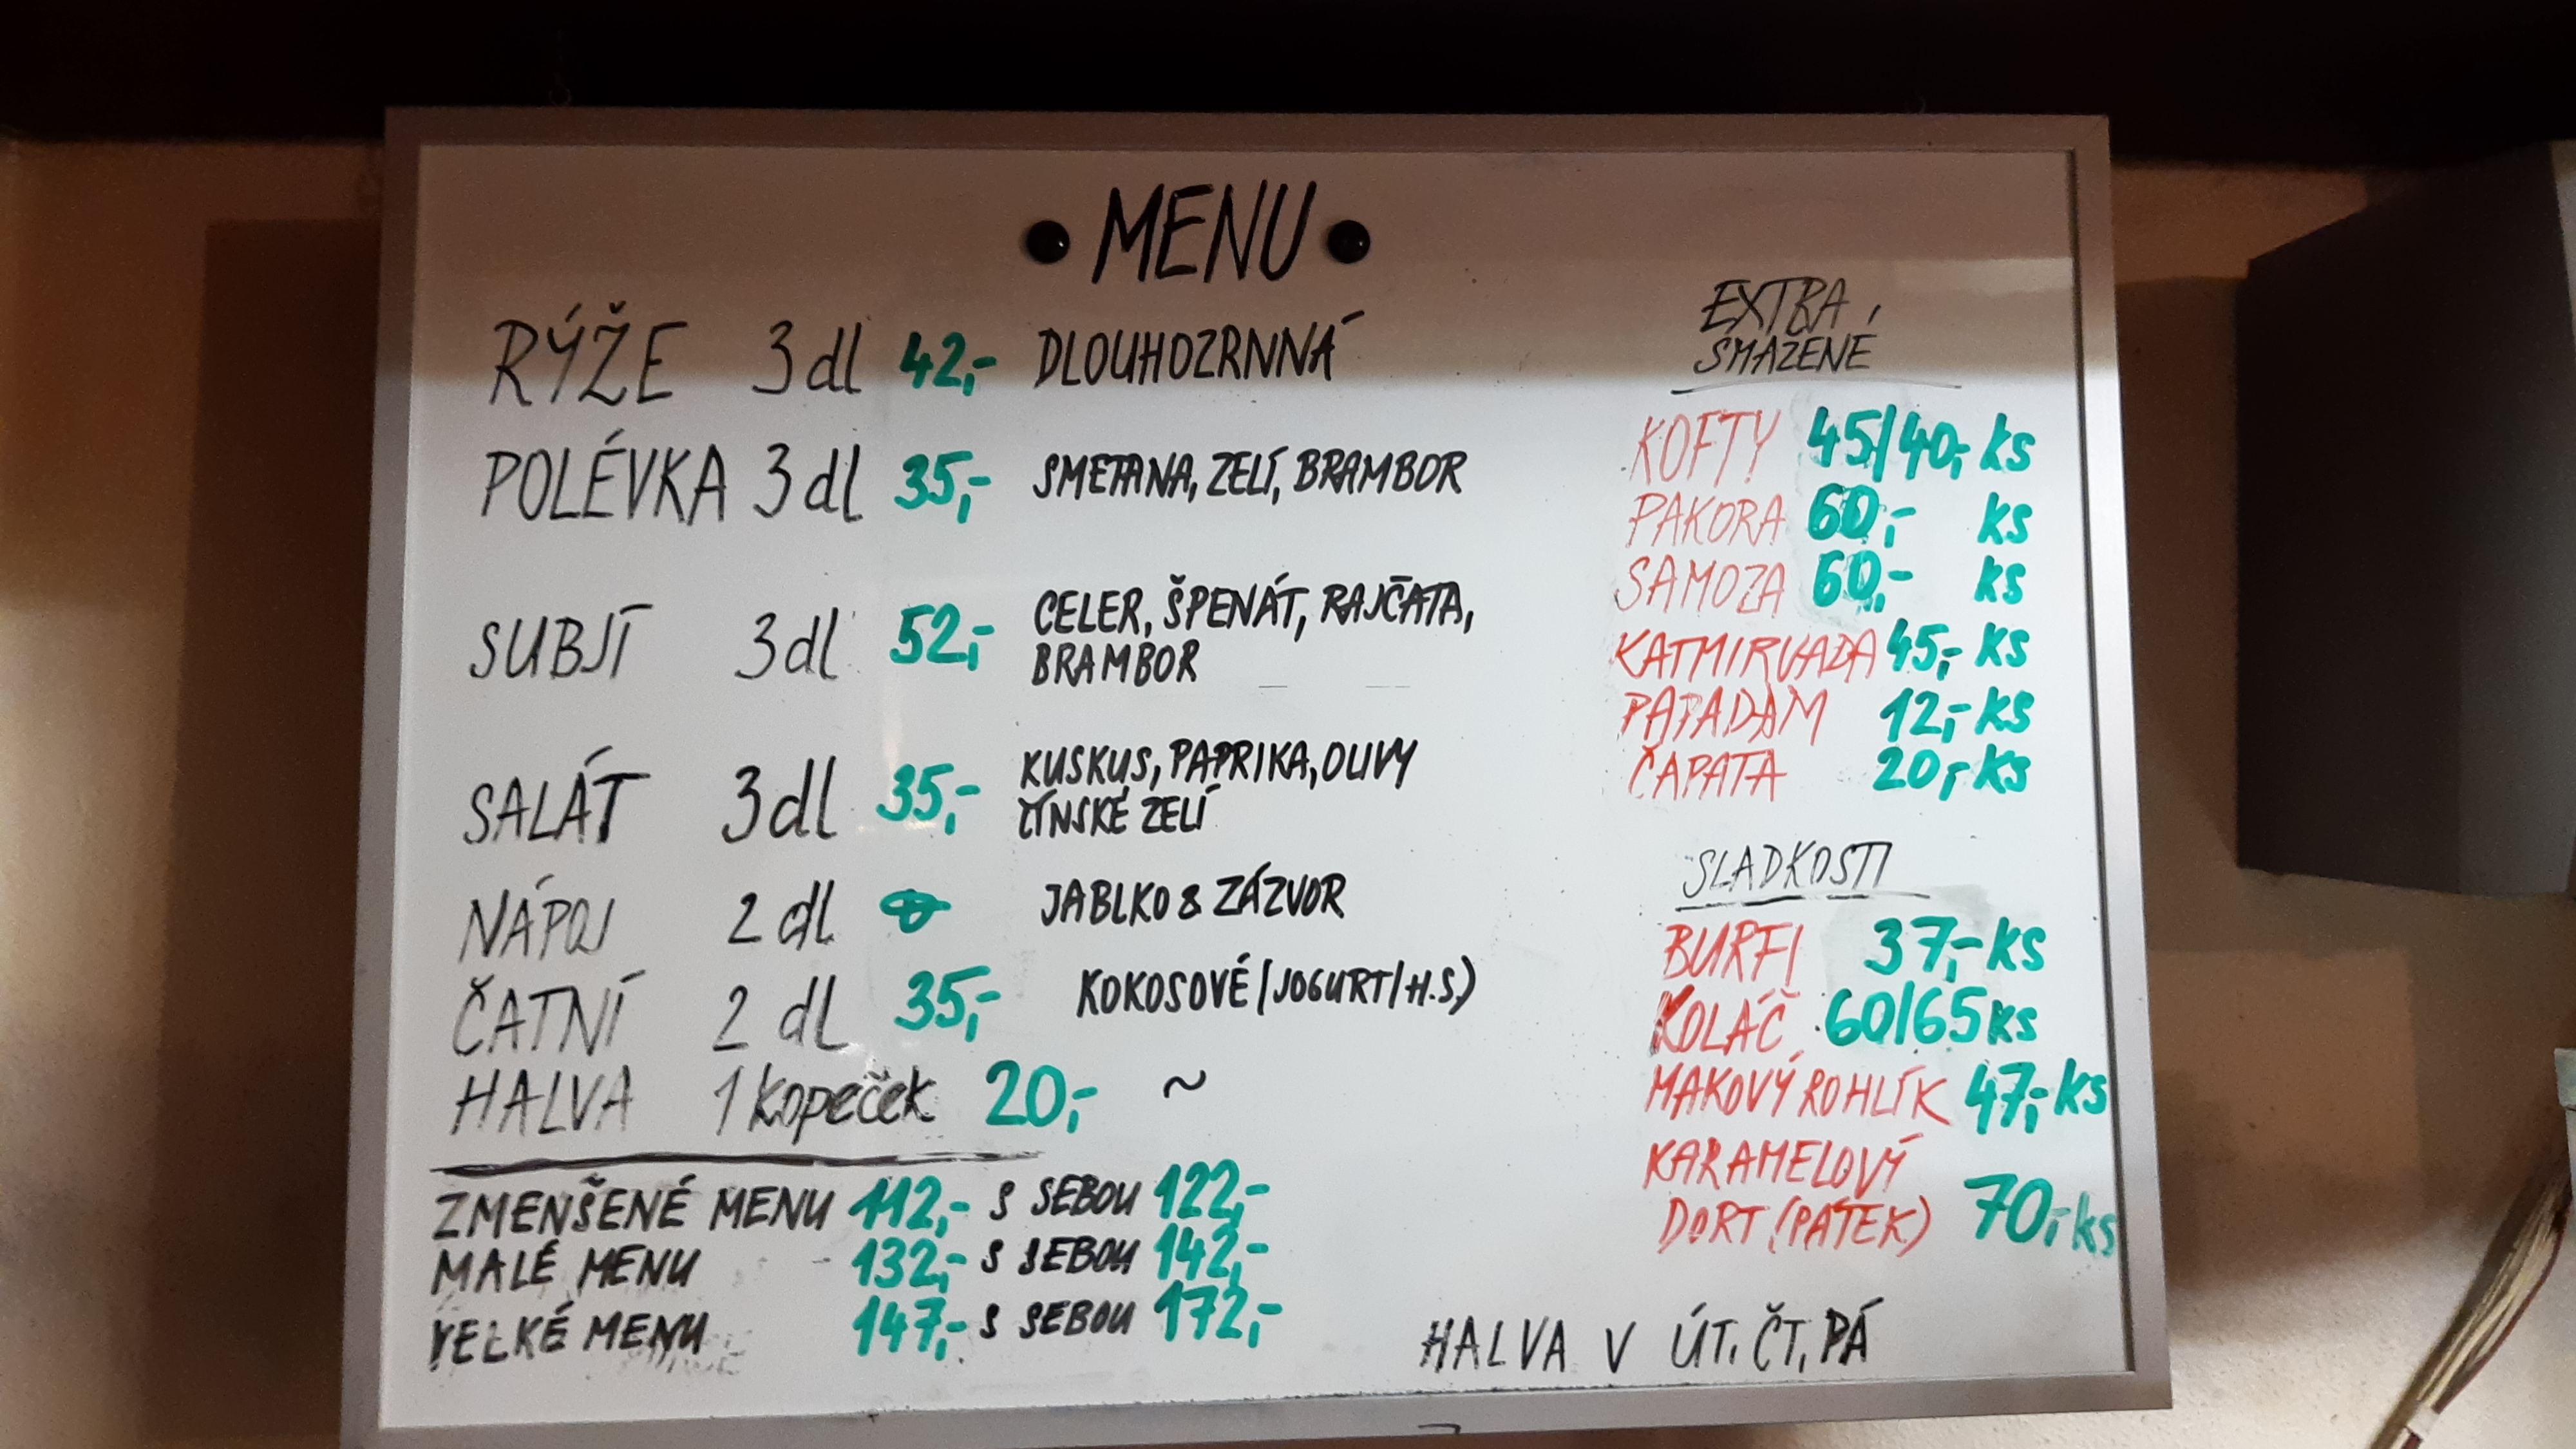 MENU
RÝŽE 3dl 42,- DLOUHOZRNNÁ
POLÉVKA 3dl 35,- SMETANA, ZELÍ, BRAMBOR
SUBJÍ 3dl 52,- CELER, ŠPENÁT, RAJČATA,
BRAMBOR
SALÁT 3dl 35,- KUSKUS, PAPRIKA, OLIVY
ČÍNSKÉ ZELÍ
NÁPOJ 2 dl JABLKO & ZÁZVOR
ČATNÍ 2 dl 35,- KOKOSOVÉ (JOGURT/H.S.)
HALVA 1 kopeček 20,- ~
ZMENŠENÉ MENU 112,- S SEBOU 122,-
MALÉ MENU 132,- S SEBOU 142,-
VELKÉ MENU 147,- S SEBOU 172,-
EXTRA
SMAŽENÉ
KOFTY 45/40,- ks
PAKORA 60,- ks
SAMOZA 60,- ks
KATMIRVADA 45,- ks
PAPADAM 12,- ks
ČAPATA 20,- ks
SLADKOSTI
BURFI 37,- ks
KOLÁČ 60/65 ks
MAKOVÝ ROHLÍK 47,- ks
KARAMELOVÝ
DORT (PÁTEK) 70,- ks
HALVA V ÚT, ČT, PÁ